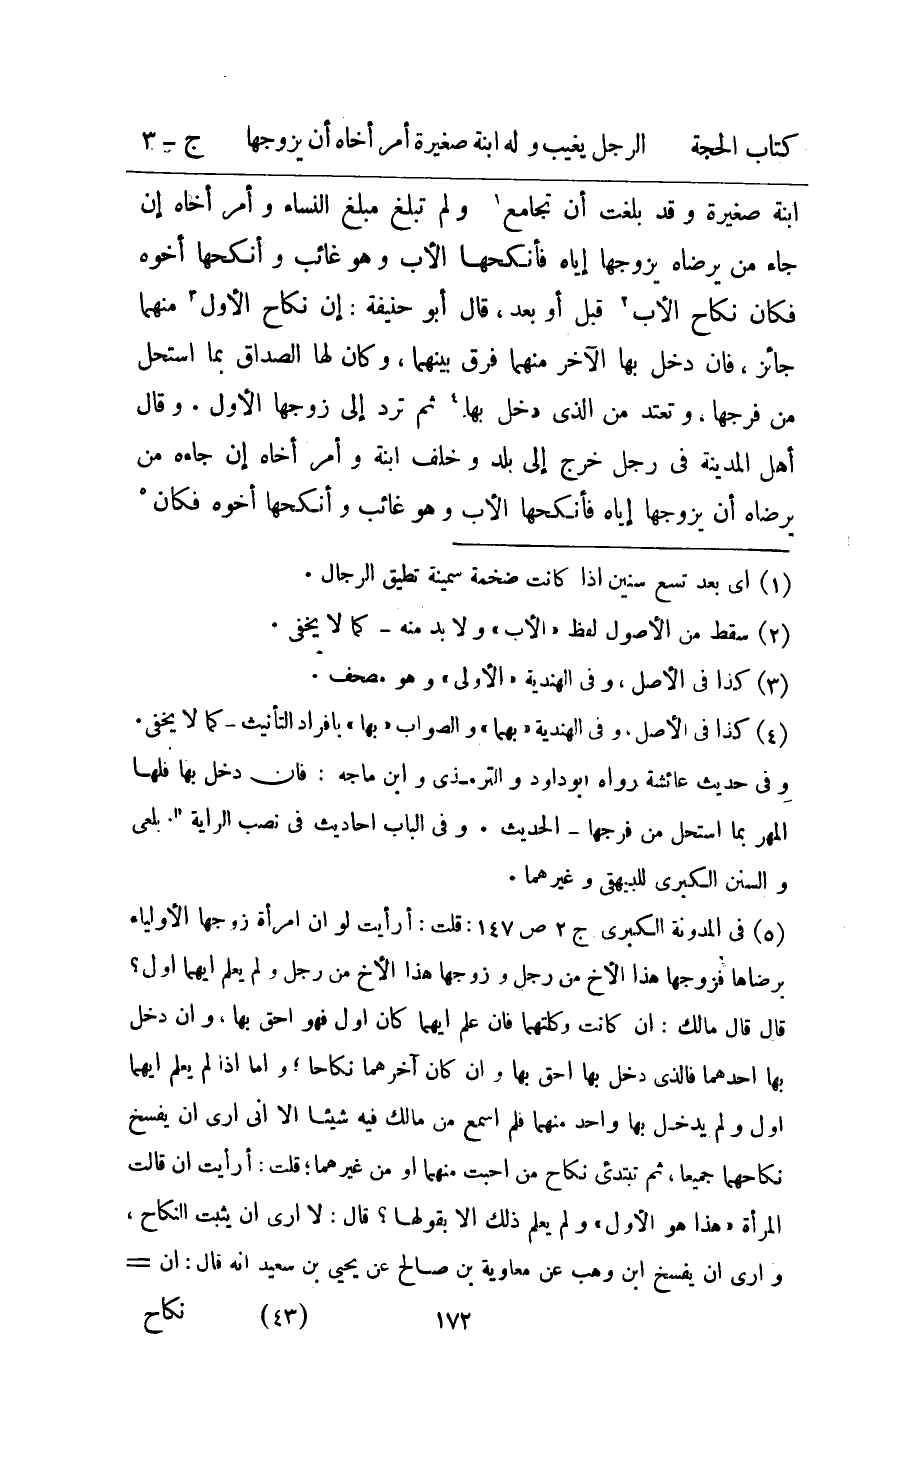 كتاب الحجة الرجل يغيب و له ابنة صغيرة أمر أخاه أن يزوجها ج - ٣
ابنة صغيرة و قد بلغت أن تجامع ١ و لم تبلغ مبلغ النساء و أمر أخاه إن
جاء من يرضاه يزوجها إياه فأنكحها الأب و هو غائب و أنكحها أخوه
فكان نكاح الأب ٢ قبل أو بعد ، قال أبو حنيفة : إن نكاح الأول ٣ منهما
جائز ، فان دخل بها الآخر منهما فرق بينهما ، و كان لها الصداق بما استحل
من فرجها ، و تعتد من الذى دخل بها ٤ ثم ترد إلى زوجها الأول . و قال
أهل المدينة فى رجل خرج إلى بلد و خلف ابنة و أمر أخاه إن جاءه من
يرضاه أن يزوجها إياه فأنكحها الأب و هو غائب و أنكحها أخوه فكان ٥
(١) اى بعد تسع سنين اذا كانت ضخمة سمينة تطيق الرجال .
(٢) سقط من الأصول لفظ «الأب» و لا بد منه - كما لا يخفى .
(٣) كذا فى الأصل ، و فى الهندية «الأولى» و هو مصحف .
(٤) كذا فى الأصل ، و فى الهندية «بهما» و الصواب «بها» بافراد التأنيث - كما لا يخفى .
و فى حديث عائشة رواه ابوداود و الترمذى و ابن ماجه : فان دخل بها فلها
المهر بما استحل من فرجها - الحديث . و فى الباب احاديث فى نصب الراية للزيلعى
و السنن الكبرى للبيهقى و غيرهما .
(٥) فى المدونة الكبرى ج ٢ ص ١٤٧ : قلت : أرأيت لو ان امرأة زوجها الأولياء
برضاها فزوجها هذا الأخ من رجل و زوجها هذا الأخ من رجل و لم يعلم ايهما اول ؟
قال قال مالك : ان كانت وكلتهما فان علم ايهما كان اول فهو احق بها ، و ان دخل
بها احدهما فالذى دخل بها احق بها و ان كان آخرهما نكاحا ؛ و اما اذا لم يعلم ايهما
اول و لم يدخل بها واحد منهما فلم اسمع من مالك فيه شيئا الا انى ارى ان يفسخ
نكاحهما جميعا ، ثم تبتدئ نكاح من احبت منهما او من غيرهما ؛ قلت : أرأيت ان قالت
المرأة «هذا هو الأول» و لم يعلم ذلك الا بقولها ؟ قال : لا ارى ان يثبت النكاح ،
و ارى ان يفسخ ابن وهب عن معاوية بن صالح عن يحيى بن سعيد انه قال : ان =
١٧٢ (٤٣) نكاح